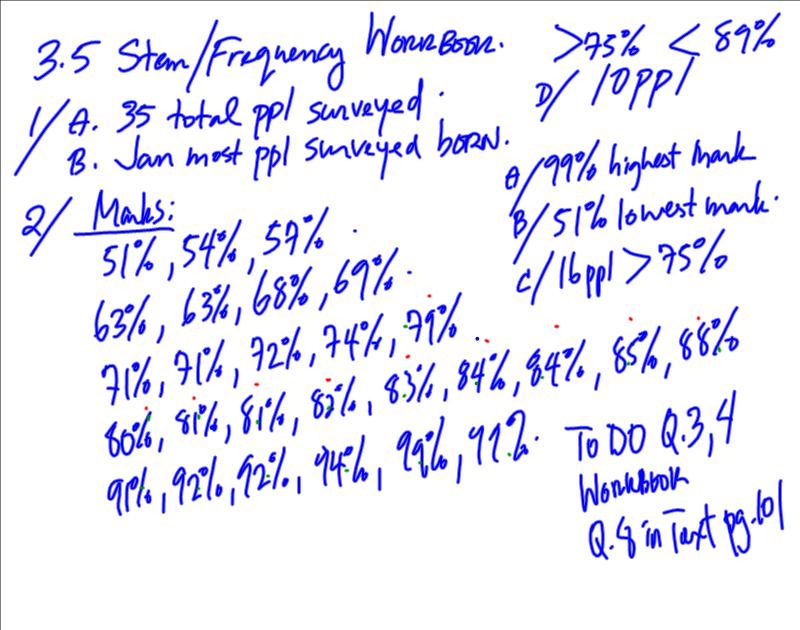 3.5 Stem/Frequency Workbook.
1/ A. 35 total ppl surveyed.
B. Jan most ppl surveyed born.
2/ Marks:
51%, 54%, 57%
63%, 63%, 68%, 69%.
71%, 71%, 72%, 74%, 79%
80%, 81%, 81%, 82%, 83%, 84%, 84%, 85%, 88%
91%, 92%, 92%, 94%, 99%, 99%.
>75% < 89%
D/ 10ppl
A/ 99% highest mark
B/ 51% lowest mark.
C/ 16ppl > 75%
To DO Q.3,4
Workbook
Q.8 in Text pg.101